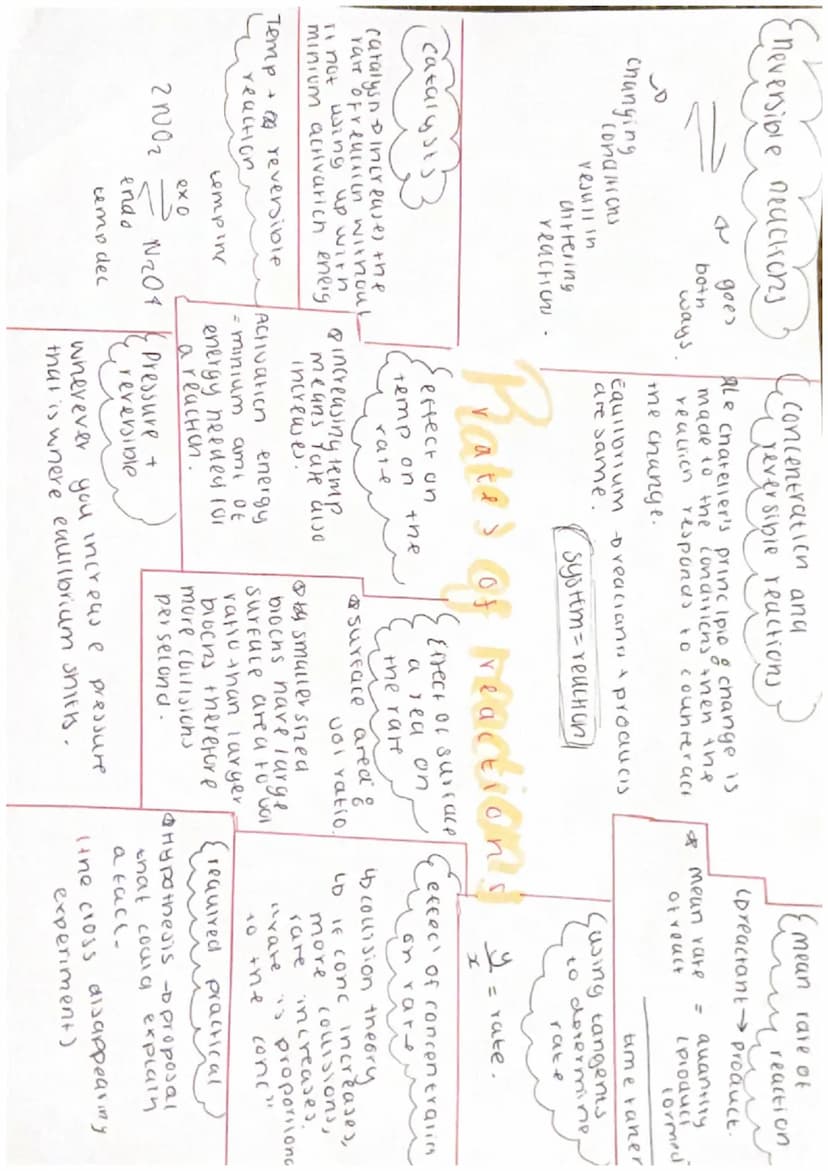 Reversible reactions
⇌
→ goes
both
ways.
→ changing
conditions
result in
differing
reactions.
concentration and
reversible reactions
*le chatelier's principle: change is
made to the conditions then the
reaction responds to counteract
the change.
Equilibrium → reactants + products
are same.
system = reaction
mean rate of
reaction
↳ reactant → product.
* mean rate of react = quantity (product formed
time taken
using tangents
to determine
rate
y/x = rate.
Rates of reactions
catalysts
catalysn → increases the
rate of reaction without
it not using up with
minium activation energ
effect on
temp on the
rate
→ increasing temp
means rate also
increases.
Activation energy
= minium amt of
energy needed for
a reaction.
Effect of surface
area on
the rate
* surface area:
vol ratio
→ smaller sized
blocks have large
surface area to vol
ratio than larger
blocks therefore
more collisions
per second.
effect of concentration
on rate
↳ collision theory
↳ if conc increases,
more collisions,
rate increases.
"rate is proportional
to the conc"
Temp + reversible
reaction
temp inc
exo
2NO2 ⇌ N2O4
endo
temp dec
pressure +
reversible
wherever you increase pressure
that is where equilibrium shifts.
required practical
→ Hypothesis → proposal
that could explain
a fact.
(the cross disappearing
experiment)